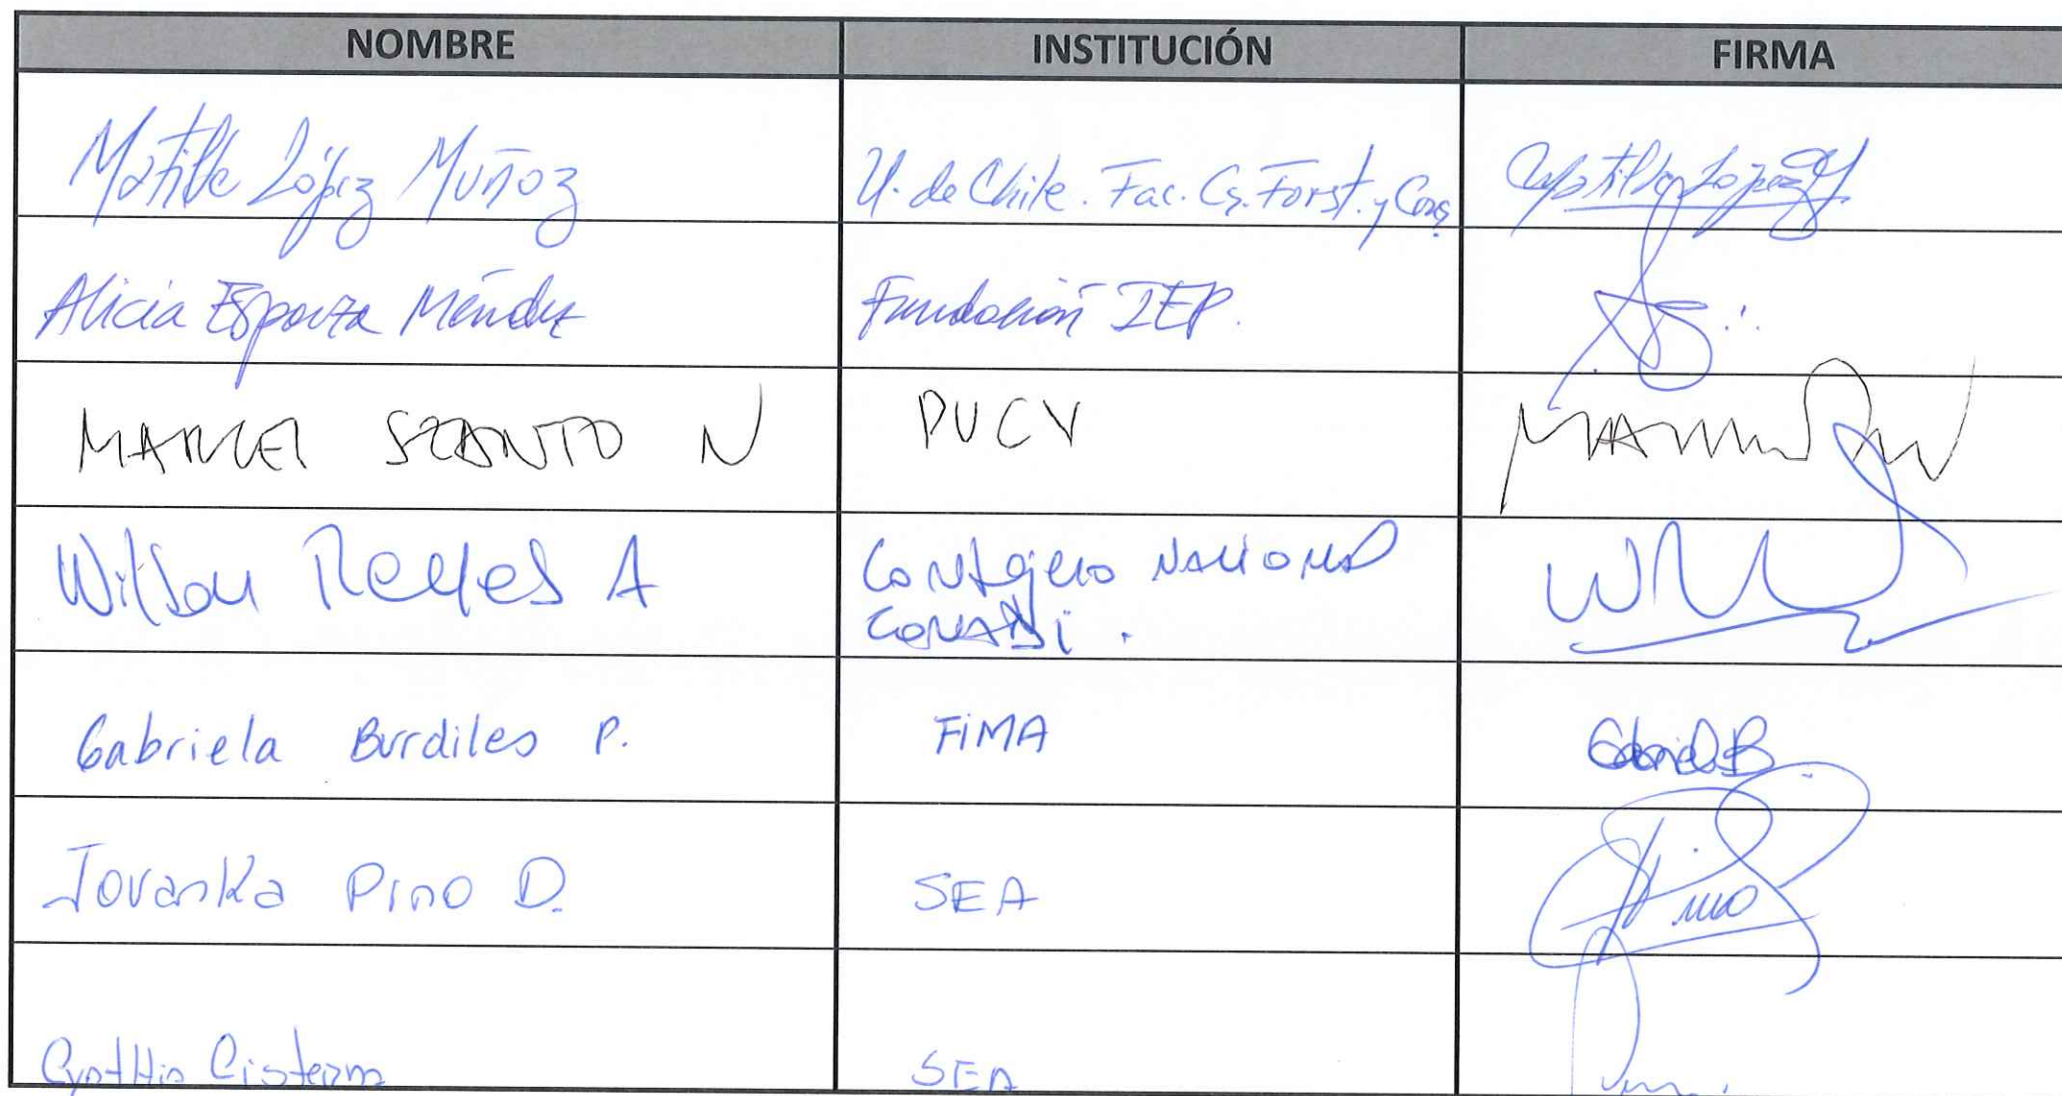 NOMBRE INSTITUCIÓN FIRMA
Matilde López Muñoz U. de Chile. Fac. Cs. Forst. y Cons. Matilde López M
Alicia Esparza Méndez Fundación IEP.
MARCEL SZANTO N PUCV
Wilson Reyes A Consejero Nacional
CONADI.
Gabriela Burdiles P. FIMA Gabriela B.
Jovanka Pino D. SEA Pino
Cynthia Cisterna SEA